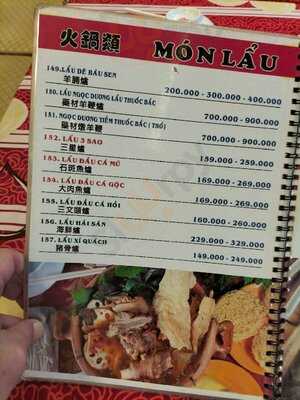 火鍋類 MÓN LẨU
149.LẨU DÊ HẦU SEN
羊腩爐 200.000 - 300.000 - 400.000
150. LẨU NGỌC DƯƠNG LẨU THUỐC BẮC
藥材羊鞭爐 700.000 - 900.000
151. NGỌC DƯƠNG TIỀM THUỐC BẮC ( THỐ)
藥材燉羊鞭 700.000-900.000
152. LẨU 3 SAO
三星爐 159.000 - 259.000
153. LẨU ĐẦU CÁ MÚ
石斑魚爐 169.000 -269.000
154. LẨU ĐẦU CÁ GỘC
大肉魚爐 169.000 -269.000
155. LẨU ĐẦU CÁ HỒI
三文頭爐 160.000 - 260.000
156. LẨU HẢI SẢN
海鮮爐 229.000 - 329.000
157. LẨU XÍ QUÁCH
豬骨爐 149.000 -249.000